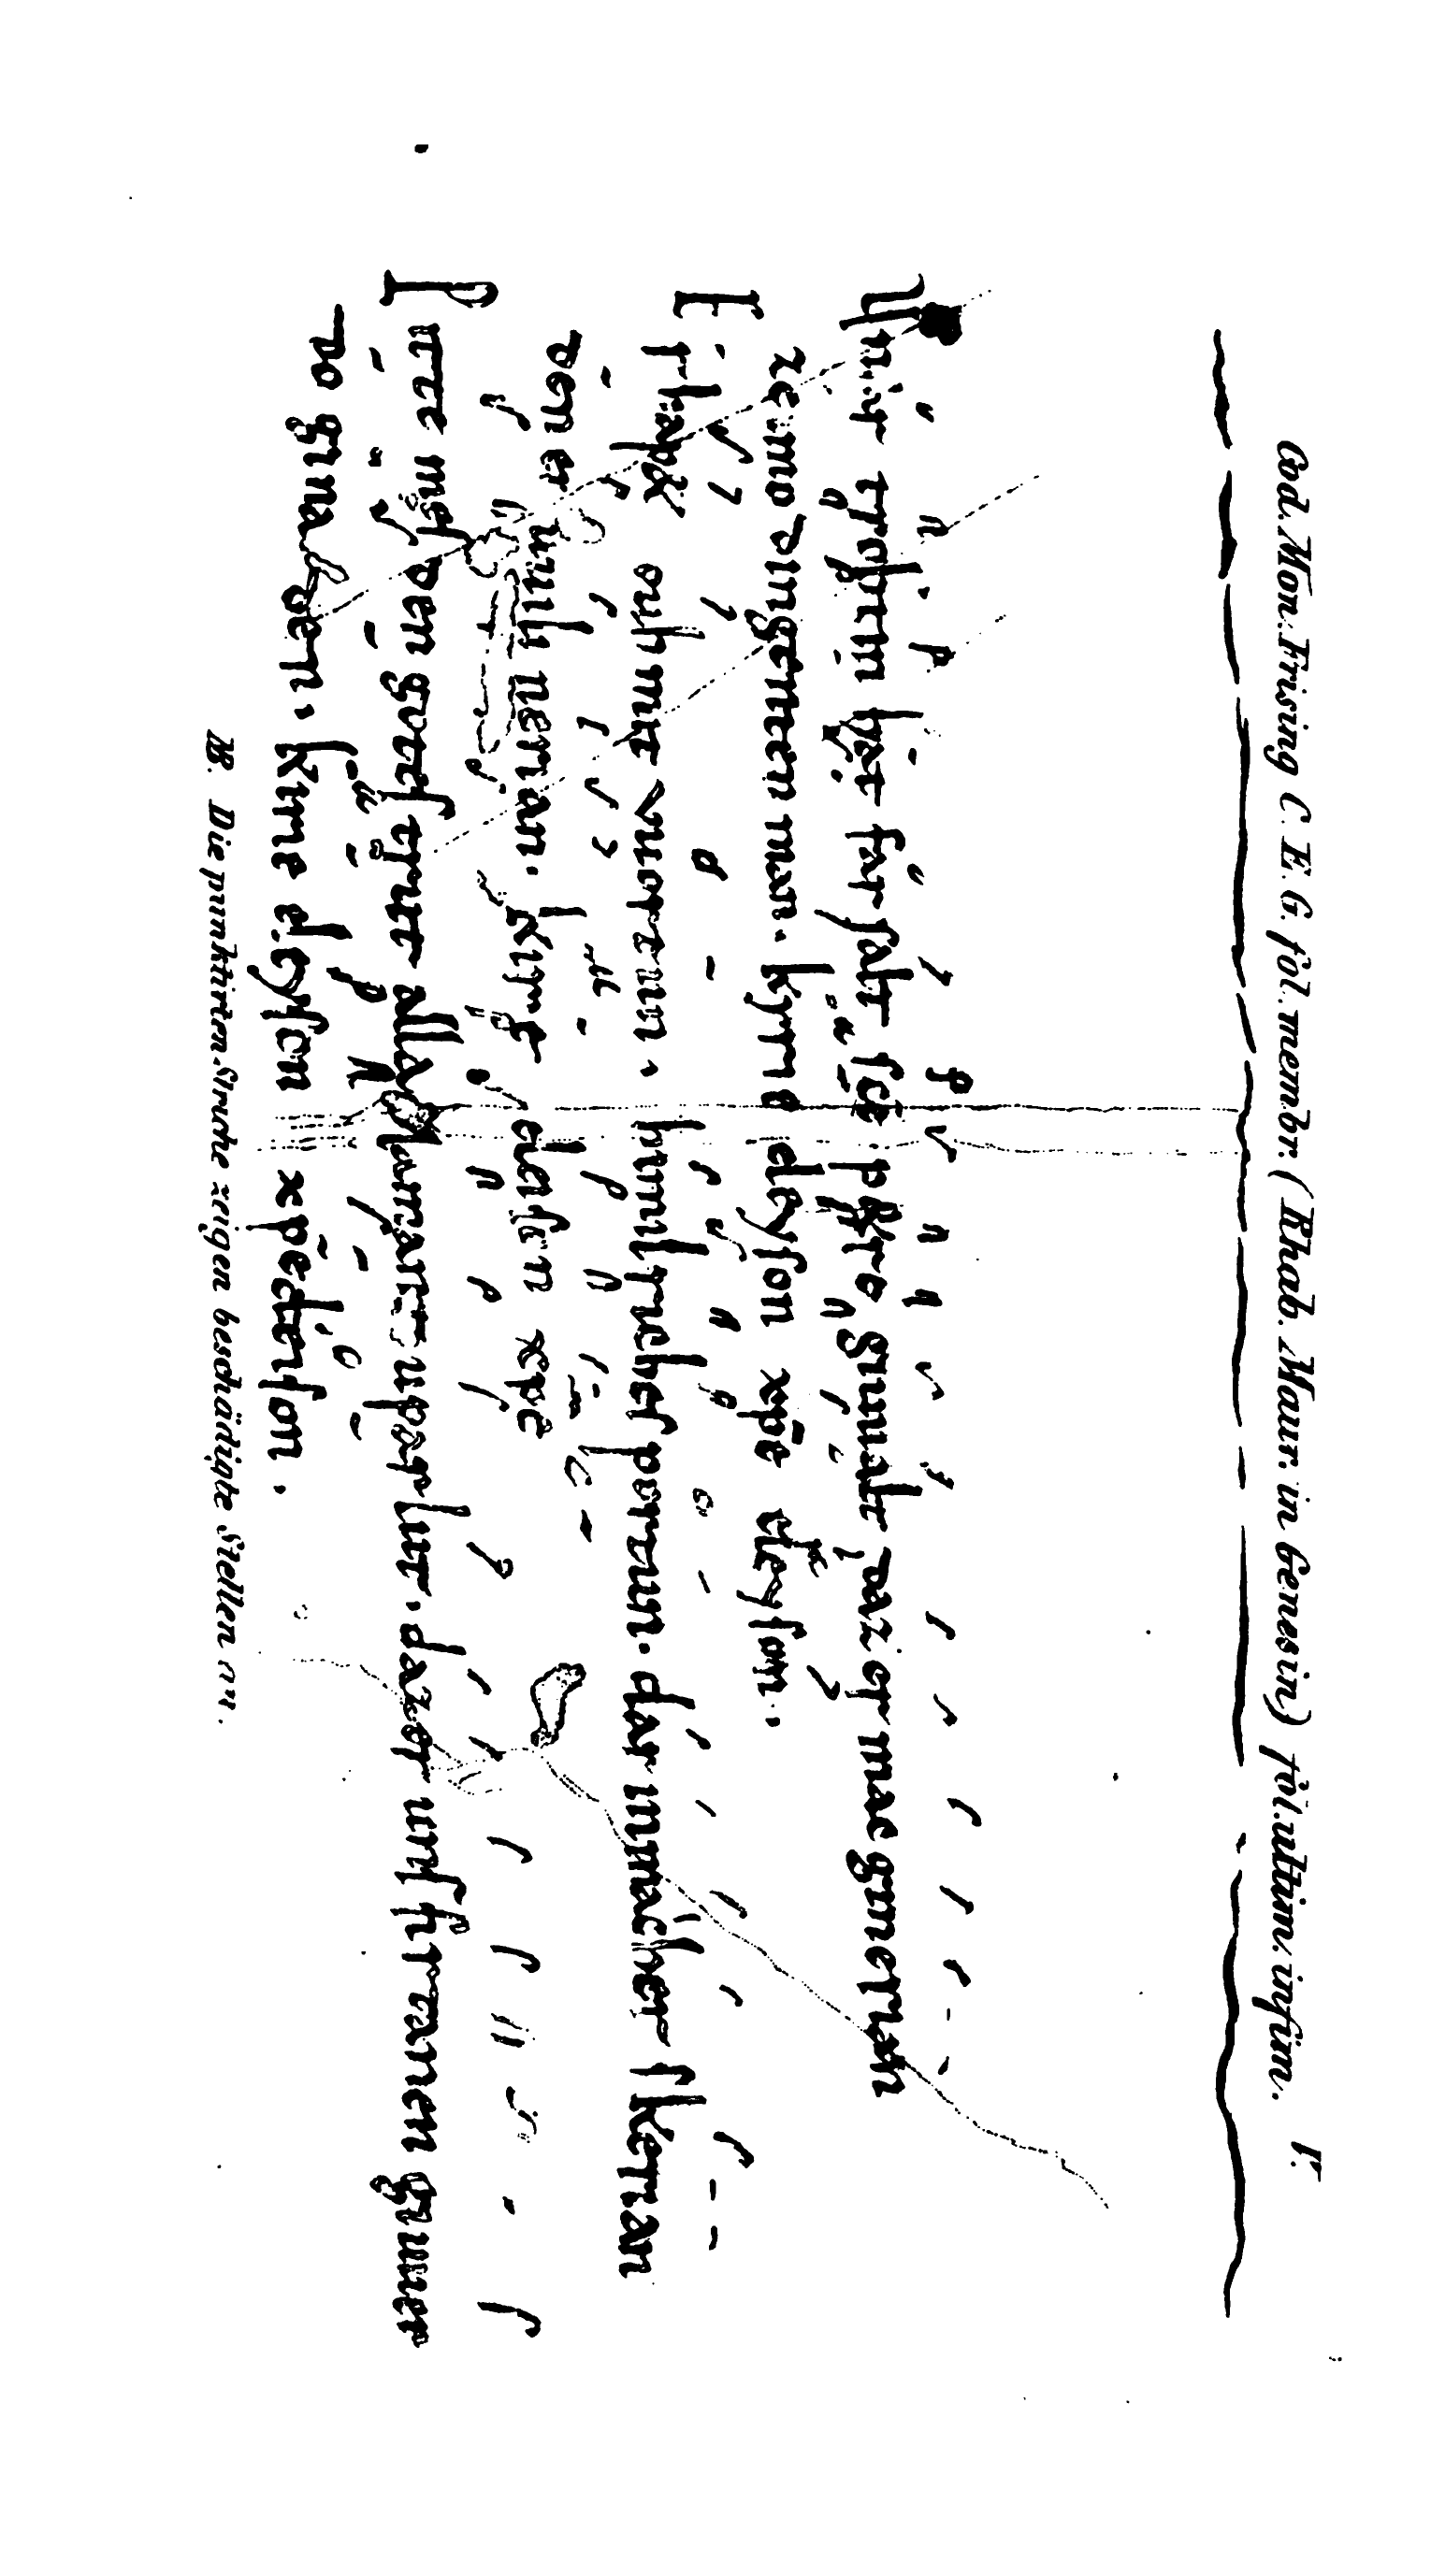 Cod. Mon. Frising C. E. G. fol. membr. (Rhab. Maur. in Genesin) fol. ultim. infim. V.
Unsar trohtin hat farsalt sce petre giuualt daz er mac ginerian
ze imo dingenten man. kyrie eleyson xpe eleyson.
Er hapet ouh mit vuortun. himilriches portun. dar in mach er skerian
den er uuili nerian. kirie eleison xpe
Pittemes den gotes trut alla samant upar lut. daz er uns firtanen giuuer
do ginaden. kirie eleyson xpe eleison.
NB. Die punktirten Striche zeigen beschädigte Stellen an.